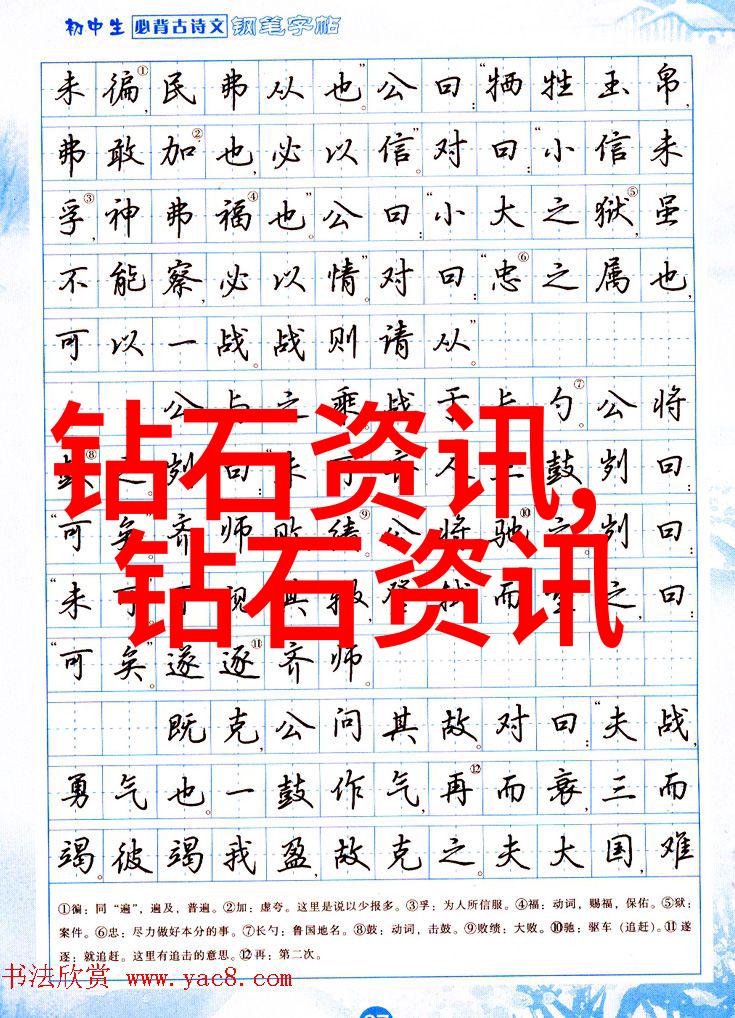 初中生必背古诗文钢笔字帖
未徧①,民弗从也。”公曰:“牺牲玉帛,
弗敢加②也,必以信。”对曰:“小信未
孚③,神弗福④也。”公曰:“小大之狱⑤,虽
不能察,必以情。”对曰:“忠⑥之属也,
可以一战。战则请从。”
公与之乘。战于长勺⑦。公将
鼓⑧之。刿曰:“未可。”齐人三鼓。刿曰:
“可矣。”齐师败绩⑨。公将驰⑩之。刿曰:
“未可。”下视其辙,登轼而望之,曰:
“可矣。”遂逐⑪齐师。
钻石资讯,
钻石资讯
既克,公问其故。对曰:“夫战,
勇气也。一鼓作气,再⑫而衰,三而
竭。彼竭我盈,故克之。夫大国,难
①徧:同“遍”,遍及,普遍。②加:虚夸。这里是说以少报多。③孚:为人所信服。④福:动词,赐福,保佑。⑤狱:
案件。⑥忠:尽力做好本分的事。⑦长勺:鲁国地名。⑧鼓:动词,击鼓。⑨败绩:大败。⑩驰:驱车(追赶)。⑪遂
逐:就追赶。这里有追击的意思。⑫再:第二次。
书法欣赏 www.yac8.com